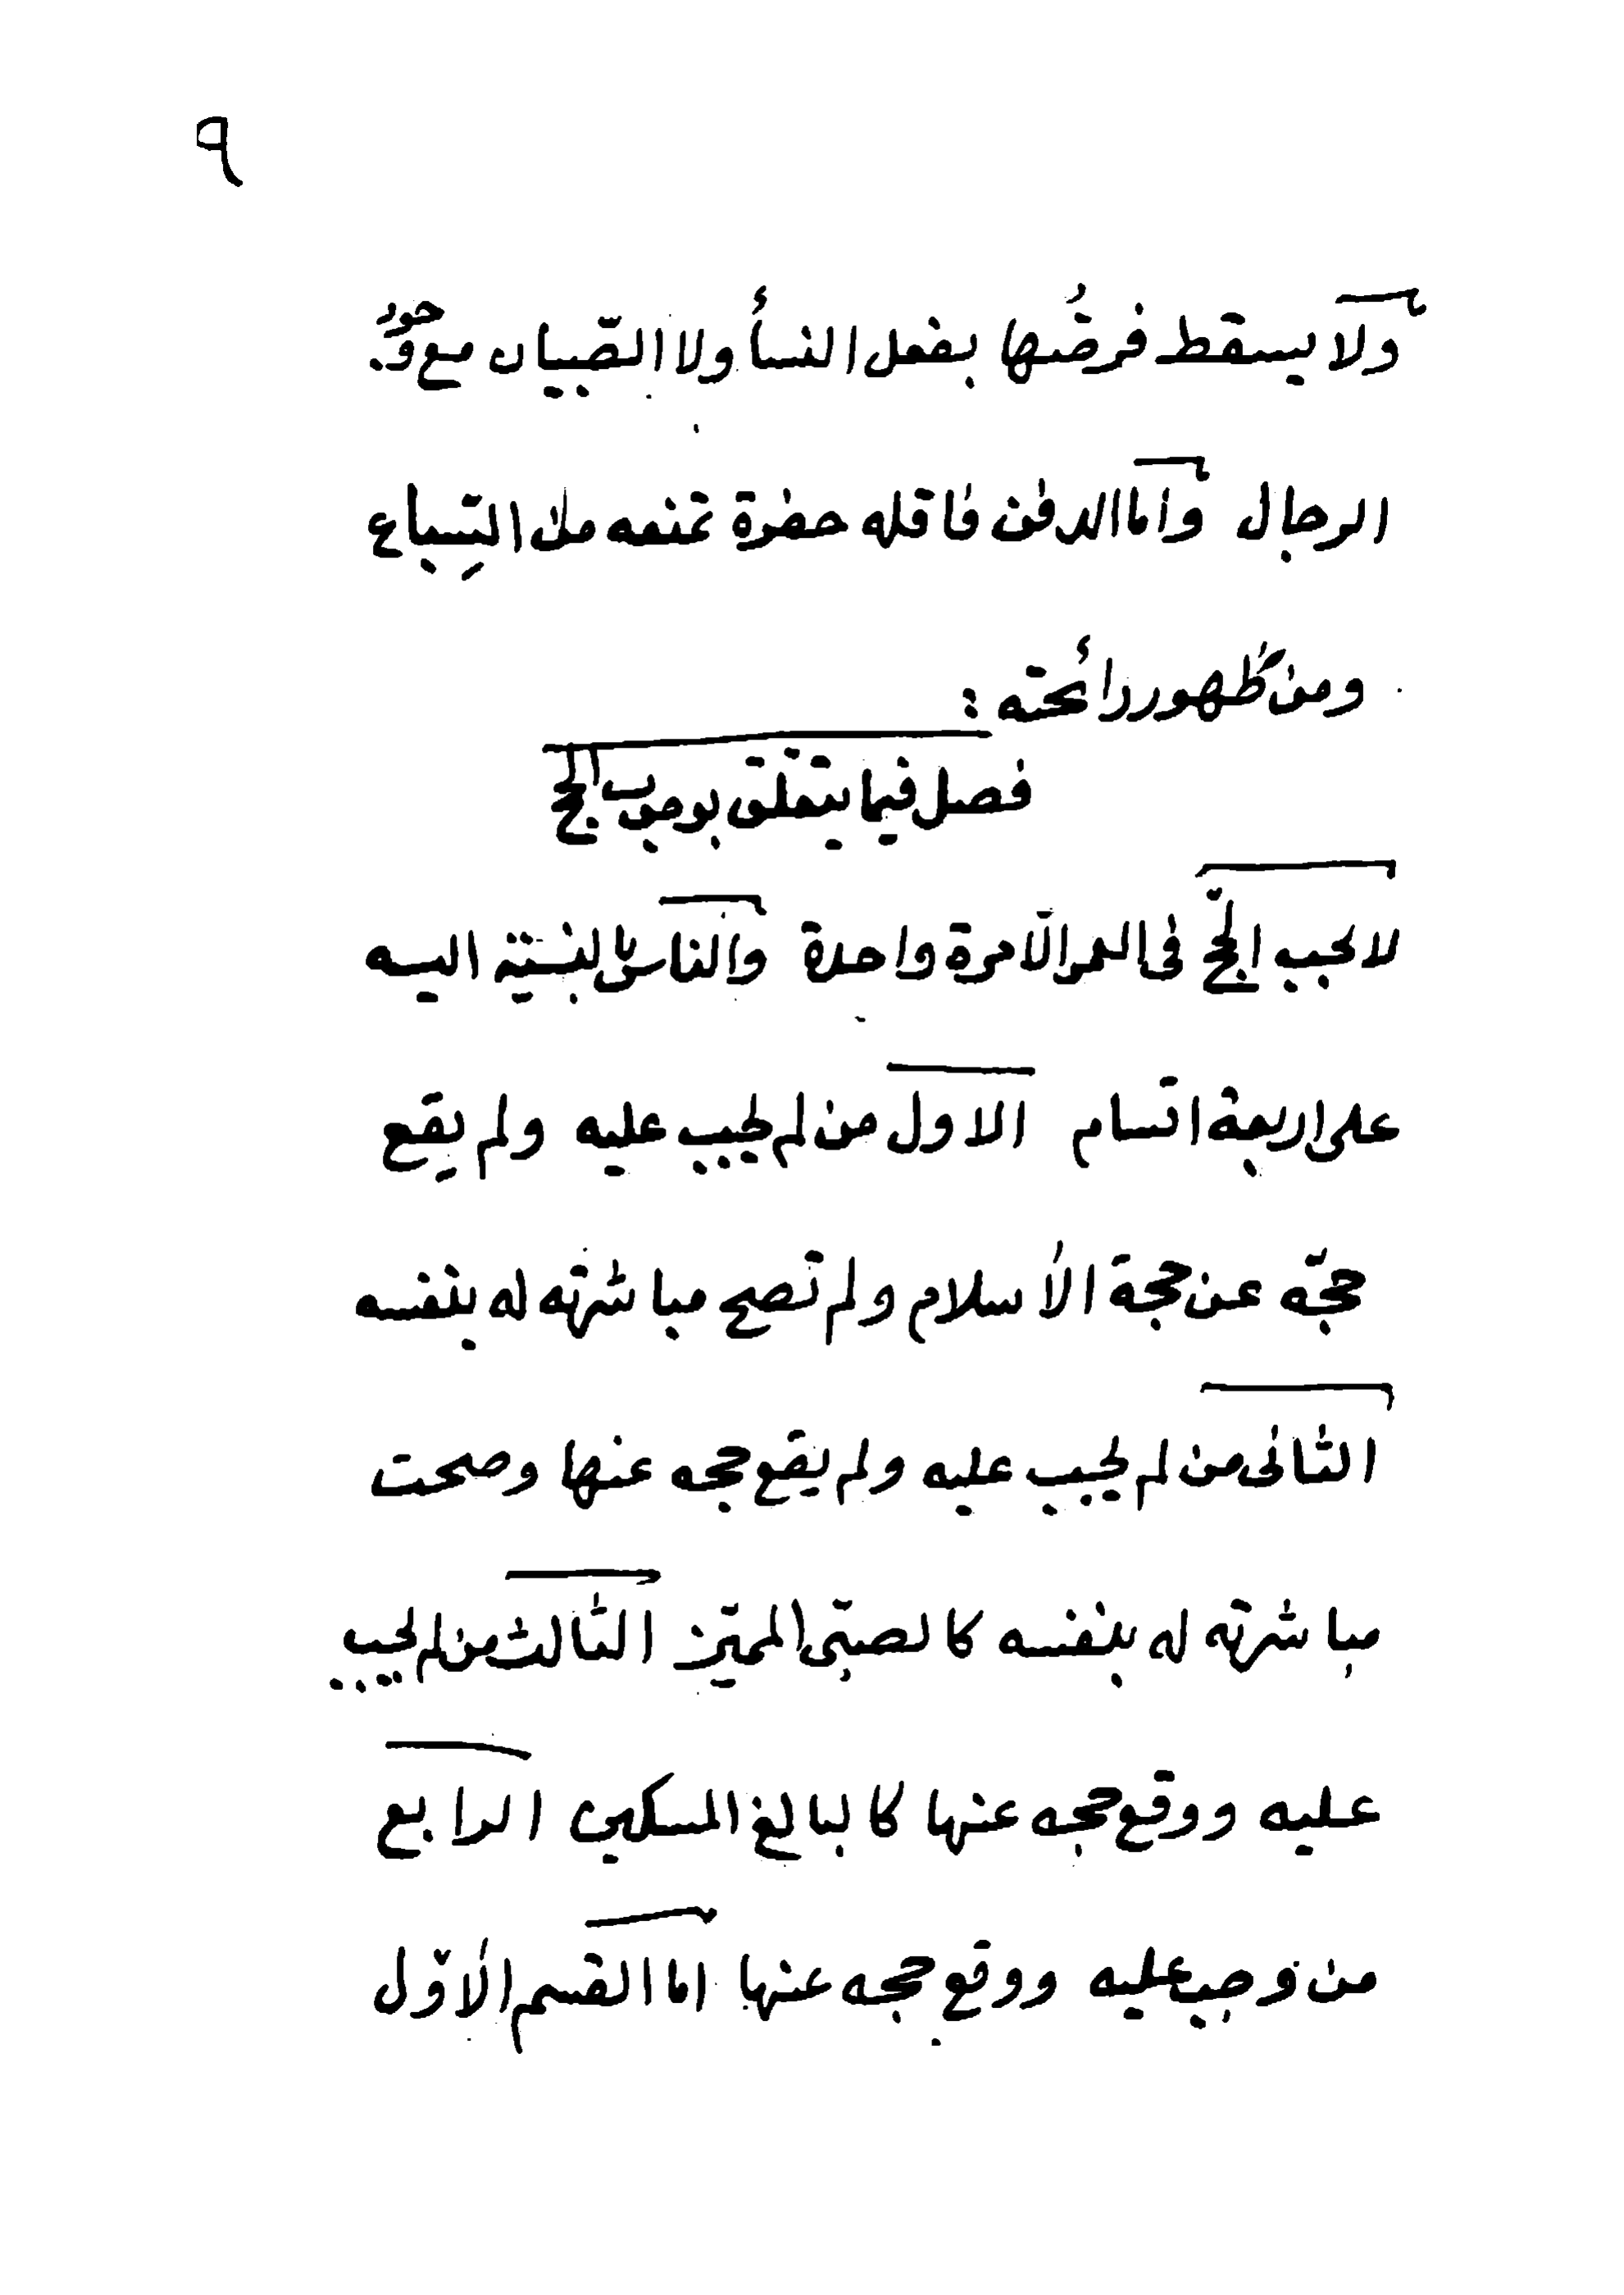 ٩
ولا يسقط فرضُها بفعل النسأ ولا الصّبيان مع وجود
الرجال واما الدفن فاقله حضرة تمنعه من السِباع
ومن ظهور رائحته :
فصل فيما يتعلق بوجوب الحج
لا يجب الحجّ فى العمر الّا مرة واحدة والناس بالنسبة اليه
على اربعة اقسام الاول من لم يجب عليه ولم يقع
حجّه عن حجة الأسلام ولم تصح مباشرته له بنفسه
الثانى من لم يجب عليه ولم يقع حجه عنها وصحت
مباشرته له بنفسه كالصبّى المميّز الثالث من لم يجب
عليه ووقع حجه عنها كالبالغ المسكين الرابع
من وجب عليه ووقع حجه عنها اما القسم الأوّل